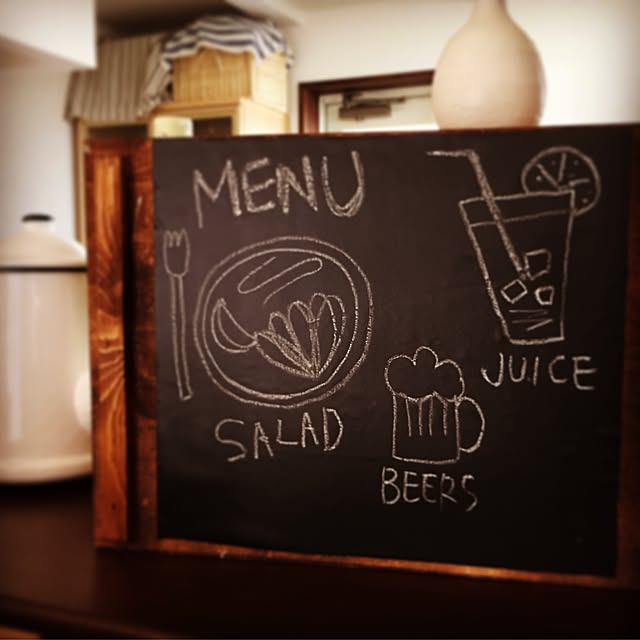 MENU
SALAD
JUICE
BEERS